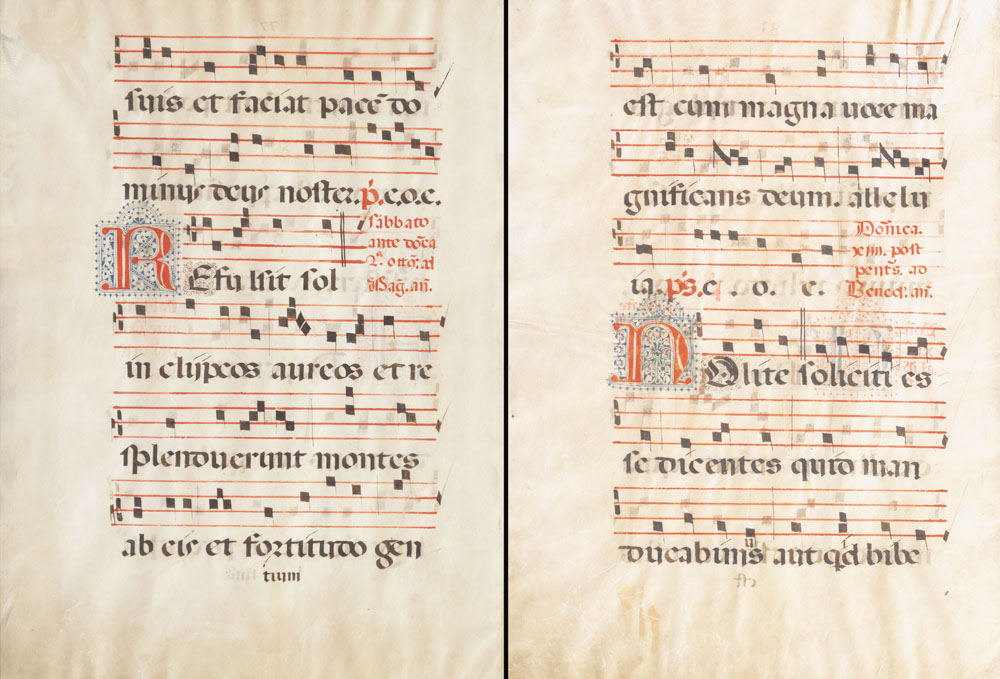 suis et faciat pacē do
minus deus noster. p̄. e.o.e.
sabbato
ante dōca
Refulsit sol
in clipeos aureos et re
splenduerunt montes
ab eis et fortitudo gen
tium
est cum magna uoce ma
gnificans deum. allelu
Dōmica.
xiiii. post
pentͤs. ad
ia. ps. e. o. e.
Benedͭ. añ.
Nolite soliciti es
se dicentes quid man
ducabimus aut qd bibe